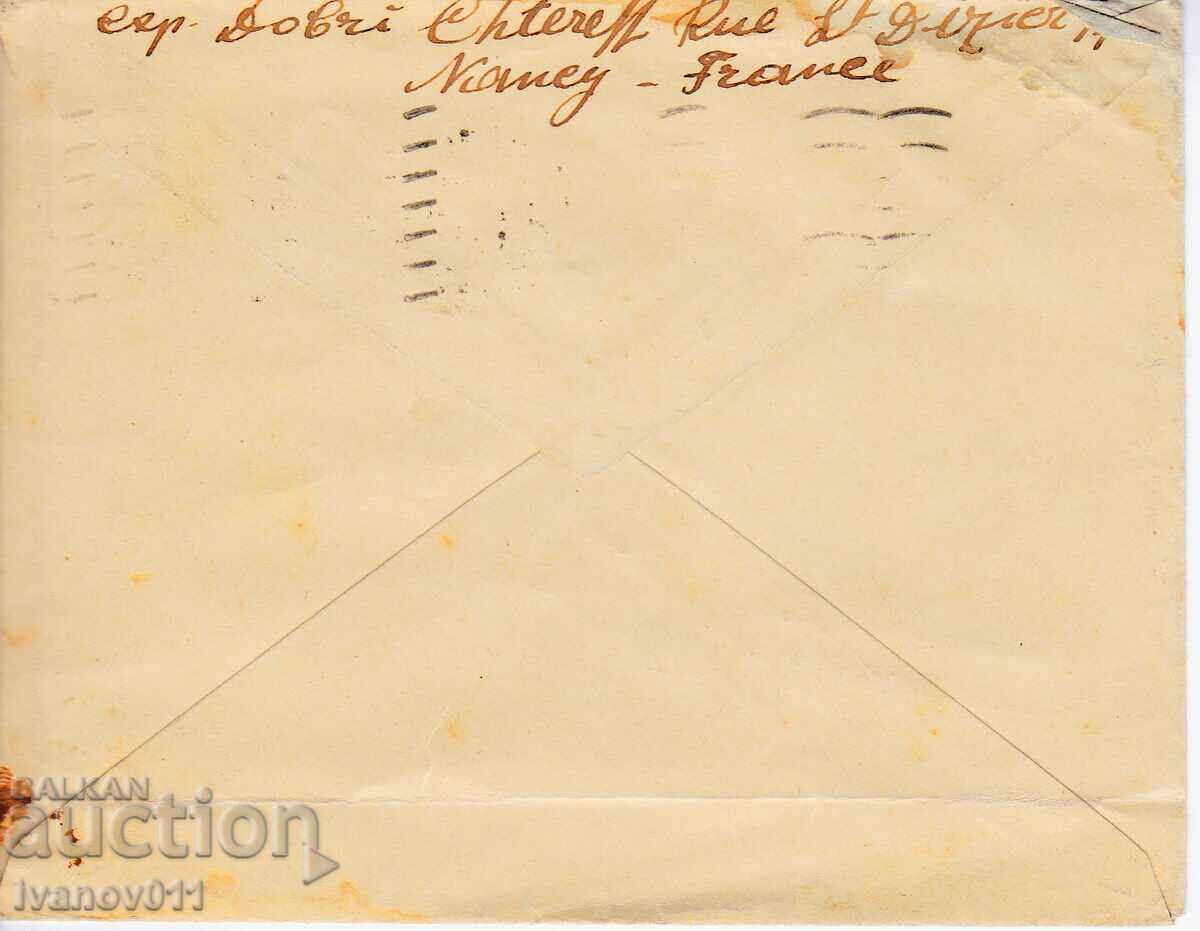 exp. Dobri Chtereff Rue St Dizier,,
Nancy - France
BALKAN
auction
ivanov011